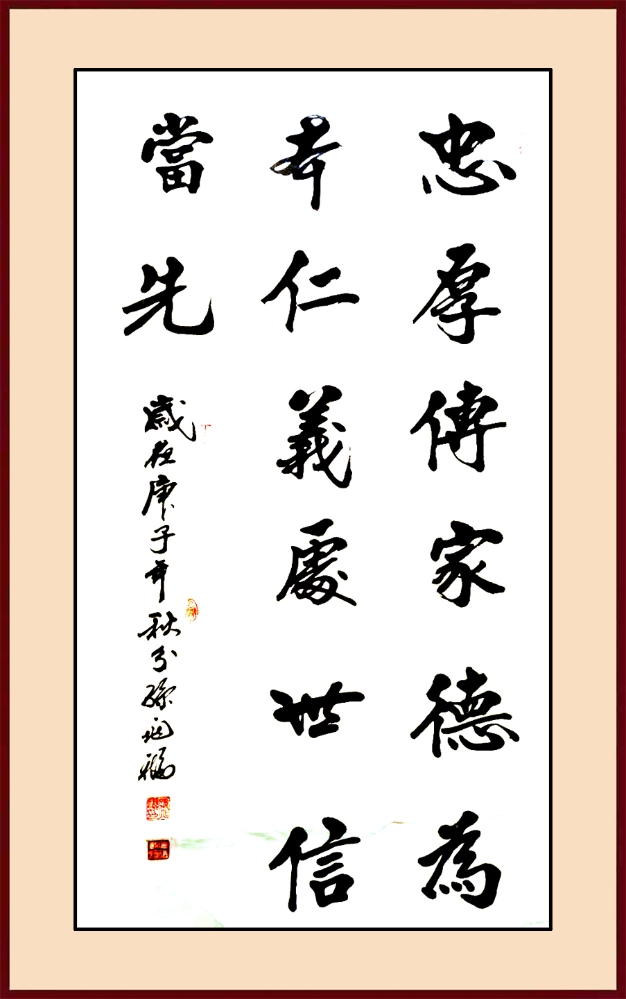 忠厚傳家德為
本仁義處世信
當先
歲在庚子年秋分孫兆福